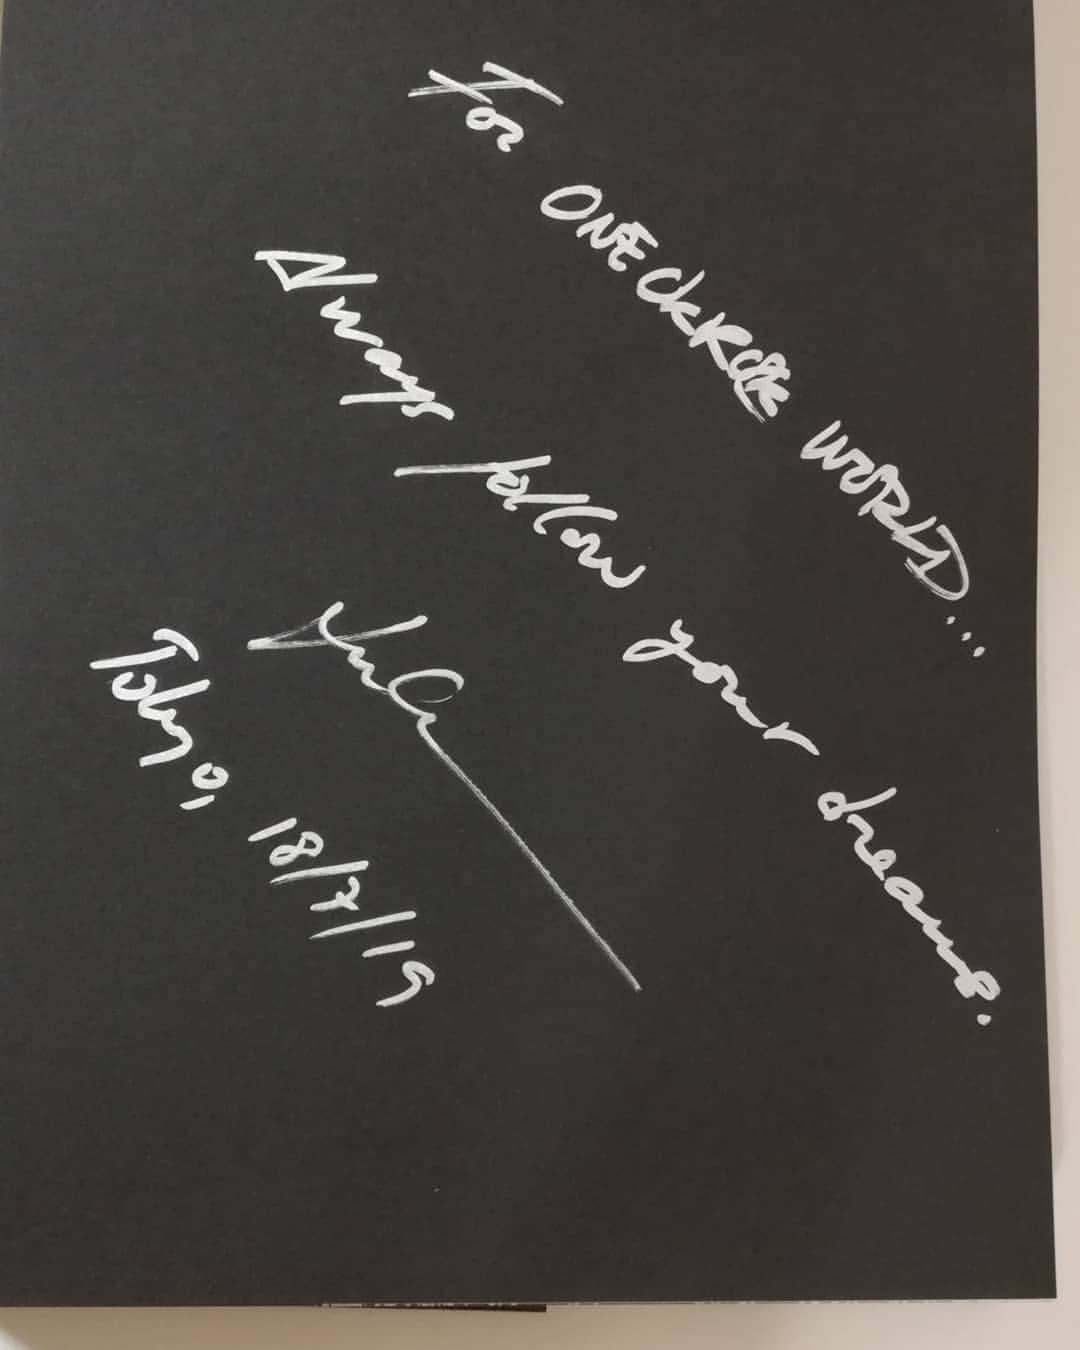 For ONEOKROCK WORLD...
Always follow your dreams.
Tokyo, 18/7/19